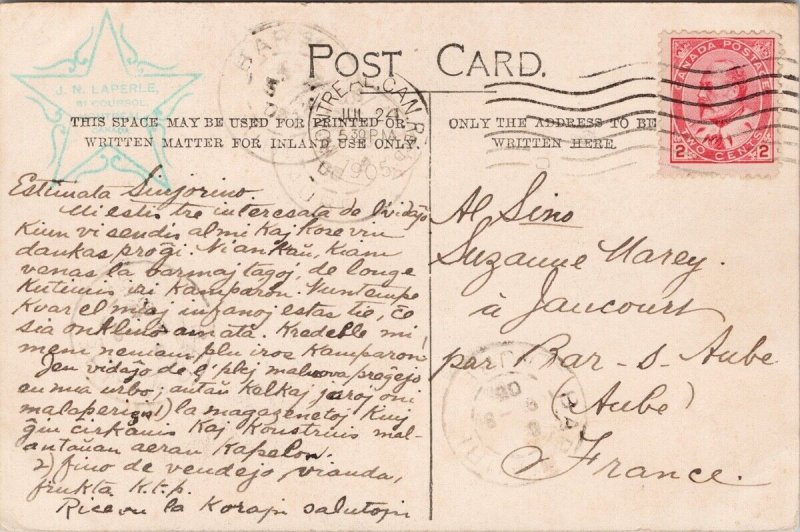 POST CARD.
J. N. LAPERLE,
81 COURSOL
CANADA
THIS SPACE MAY BE USED FOR PRINTED OR
WRITTEN MATTER FOR INLAND USE ONLY.
ONLY THE ADDRESS TO BE
WRITTEN HERE.
MONTREAL, CAN.
JUL 24
5 30 PM
1905
CANADA POSTAGE
2 TWO CENTS 2
Estimata Sinjorino.
Mi estis tre interesata de l'vidaĵo
kiun vi sendis al mi kaj kore vin
dankas pro ĝi. Ni ankaŭ, kiam
venas la varmaj tagoj, de longe
kutimis iri kamparon. Nuntempe
kvar el miaj infanoj estas tie, ĉe
sia onklino amata. Kredeble mi
mem neniam plu iros kamparon
Jen vidaĵo de l'plej malnova preĝejo
en nia urbo; antaŭ kelkaj jaroj oni
malaperigis 1) la magazenetoj kiuj
ĝin cirkaŭis kaj konstruis mal-
antaŭan aeran kapelon.
2) fino de vendejo, vianda,
frukta k.t.p.
Ricevu la korajn salutojn
Al Sino
Suzanne Marey.
à Jaucourt
par Bar-s-Aube
(Aube)
France.